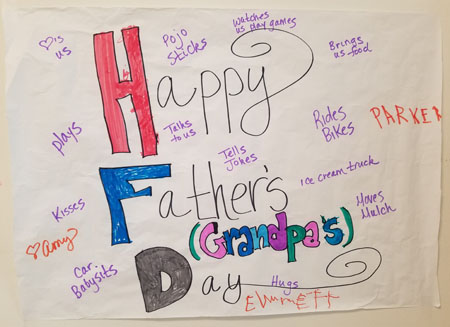 ♡'s
us
Pojo
Sticks
Watches
us play games
Brings
us food
Happy
plays
Talks
to us
Tells
Jokes
Rides
Bikes
PARKER
Father's
Ice cream truck
Kisses
(Grandpa's)
Moves
Mulch
♡amy
Car
Babysits
Day
Hugs
EmmETT